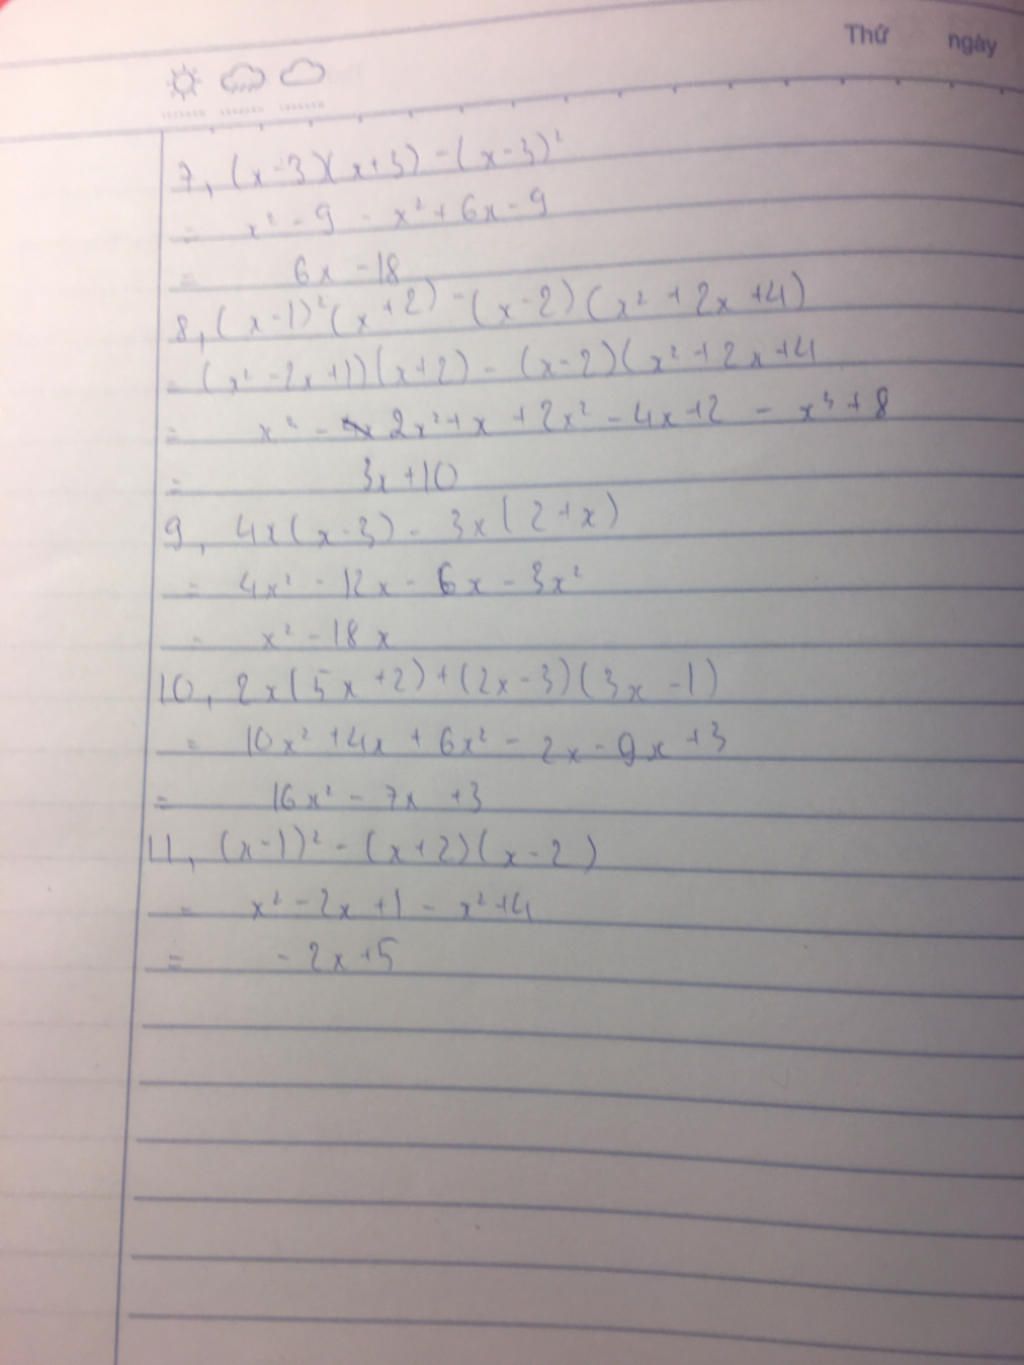 Thứ ngày
7, (x-3)(x+3) - (x-3)²
= x² - 9 - x² + 6x - 9
= 6x - 18
8, (x-1)²(x+2) - (x-2)(x²+2x+4)
= (x² - 2x + 1)(x+2) - (x-2)(x²+2x+4
= x³ - 2x² + x + 2x² - 4x + 2 - x³ + 8
= 3x + 10
9, 4x(x-3) - 3x(2+x)
= 4x² - 12x - 6x - 3x²
= x² - 18x
10, 2x(5x+2) + (2x-3)(3x-1)
= 10x² + 4x + 6x² - 2x - 9x + 3
= 16x² - 7x + 3
11, (x-1)² - (x+2)(x-2)
= x² - 2x + 1 - x² + 4
= - 2x + 5